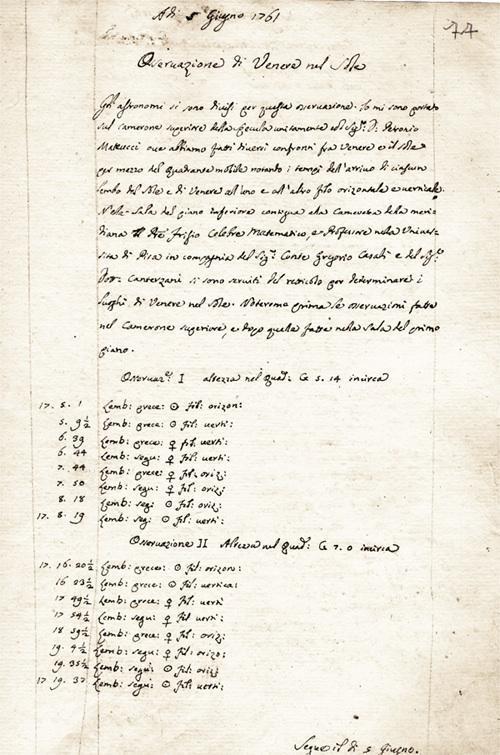 Adi 5 Giugno 1761
77
Osservazione di Venere nel Sole
Gli astronomi si sono divisi per questa osservazione. Io mi sono portato
sul camerone superiore della specula unitamente col Sigr. D. Petronio
Matteucci ove abbiamo fatti diversi confronti fra Venere e il Sole
per mezzo del quadrante mobile notando i tempi dell'arrivo di ciascun
lembo del Sole e di Venere all'uno e all'altro filo orizontale e verticale.
Nela Sala del piano inferiore contigua alla Camera della meri-
diana il Pre. Frisio Celebre Matematico, e Professore nella Univer-
sità di Pisa in compagnia del Sigr. Conte Gregorio Casali e del Sigr.
Dott. Canterzani si sono serviti del reticolo per determinare i
luoghi di Venere nel Sole. Noteremo prima le osservazioni fatte
nel Camerone superiore, e dopo quelle fatte nella Sala del primo
piano.
Osservaz. I altezza nel Quad. G 5. 14 incirca
17. 5. 1 Lemb: prece: ☉ fil: orizon:
5. 9½ Lemb: prece: ☉ fil: verti:
6. 39 Lemb: prece: ♀ fil: verti:
6. 44 Lemb: segu: ♀ fil: verti:
7. 44 Lemb: prece: ♀ fil: oriz:
7. 50 Lemb: segu: ♀ fil: oriz:
8. 18 Lemb: seg: ☉ fil: oriz:
17. 8. 19 Lemb: seg: ☉ fil: verti:
Osservazione II Altezza nel Quad: G 7. 0 incirca
17. 16. 20½ Lemb: prece: ☉ fil: orizon:
16 23½ Lemb: prece: ☉ fil: vertica:
17 49½ Lemb: prece: ♀ fil: verti
17 54½ Lemb: segu: ♀ fil verti:
18 59½ Lemb: prece: ♀ fil: oriz:
19. 4½ Lemb: segu: ♀ fil: orizo:
19. 35½ Lemb: segu: ☉ fil: oriz:
17 19. 37 Lemb: segu: ☉ fil: verti:
Segue il di 5 Giugno.